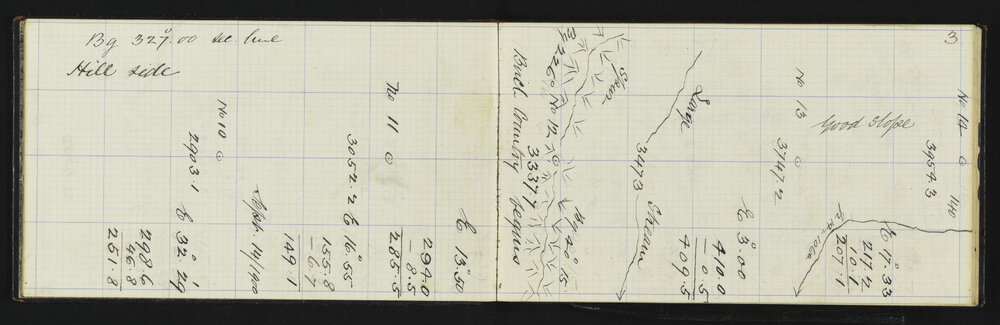 Bg 327°.00 sec. line
Hill side
No 10
2903.1
E 32° 29'
298.6
-46.8
251.8
Sept. 19/1900
No 11
3052.2
E 16°.55
155.8
-6.7
149.1
E 13°.50
294.0
-8.5
285.5
Brid. Country begins
3337.7
No 12
Bg 226°
Bg 20°.15
Spur
Large
Stream
3473
3
No 13
3747.2
E 3°.00
410.0
-0.5
409.5
Good Slope
No 14
3954.3
E 17°.33
217.2
-10.1
207.1